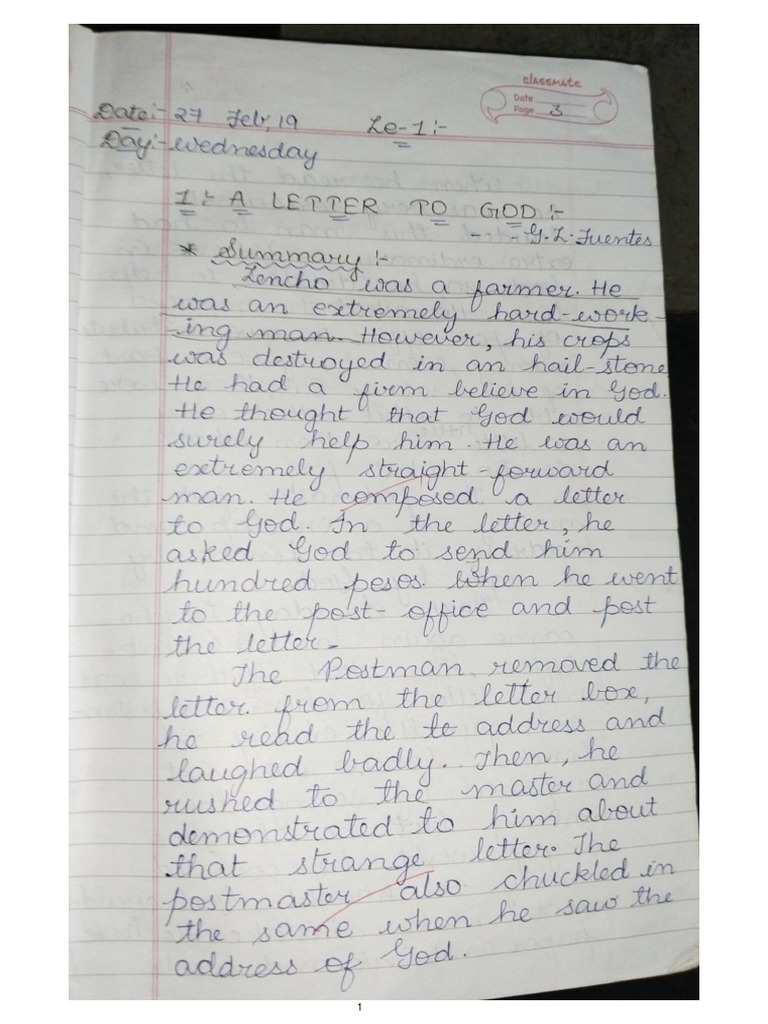 classmate
Date
Page 3
Date:- 27 Feb, 19 Le-1:-
Day:- Wednesday
1:- A LETTER TO GOD:-
- - G.L. Fuentes
* Summary:-
Lencho was a farmer. He
was an extremely hard-work-
ing man. However, his crops
was destroyed in an hail-stone
He had a firm believe in God.
He thought that God would
surely help him. He was an
extremely straight-forward
man. He composed a letter
to God. In the letter, he
asked God to send him
hundred pesos. When he went
to the post-office and post
the letter.
The Postman removed the
letter from the letter box,
he read the te address and
laughed badly. Then, he
rushed to the master and
demonstrated to him about
that strange letter. The
postmaster also chuckled in
the same when he saw the
address of God.
1